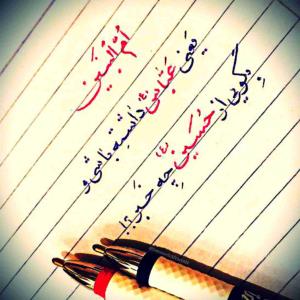 اُمُّ البَنین
یَعنی عَبّاس(ع) داشتِه باشی و
بِگویی از حُسَین(ع) چِه خَبَر؟!